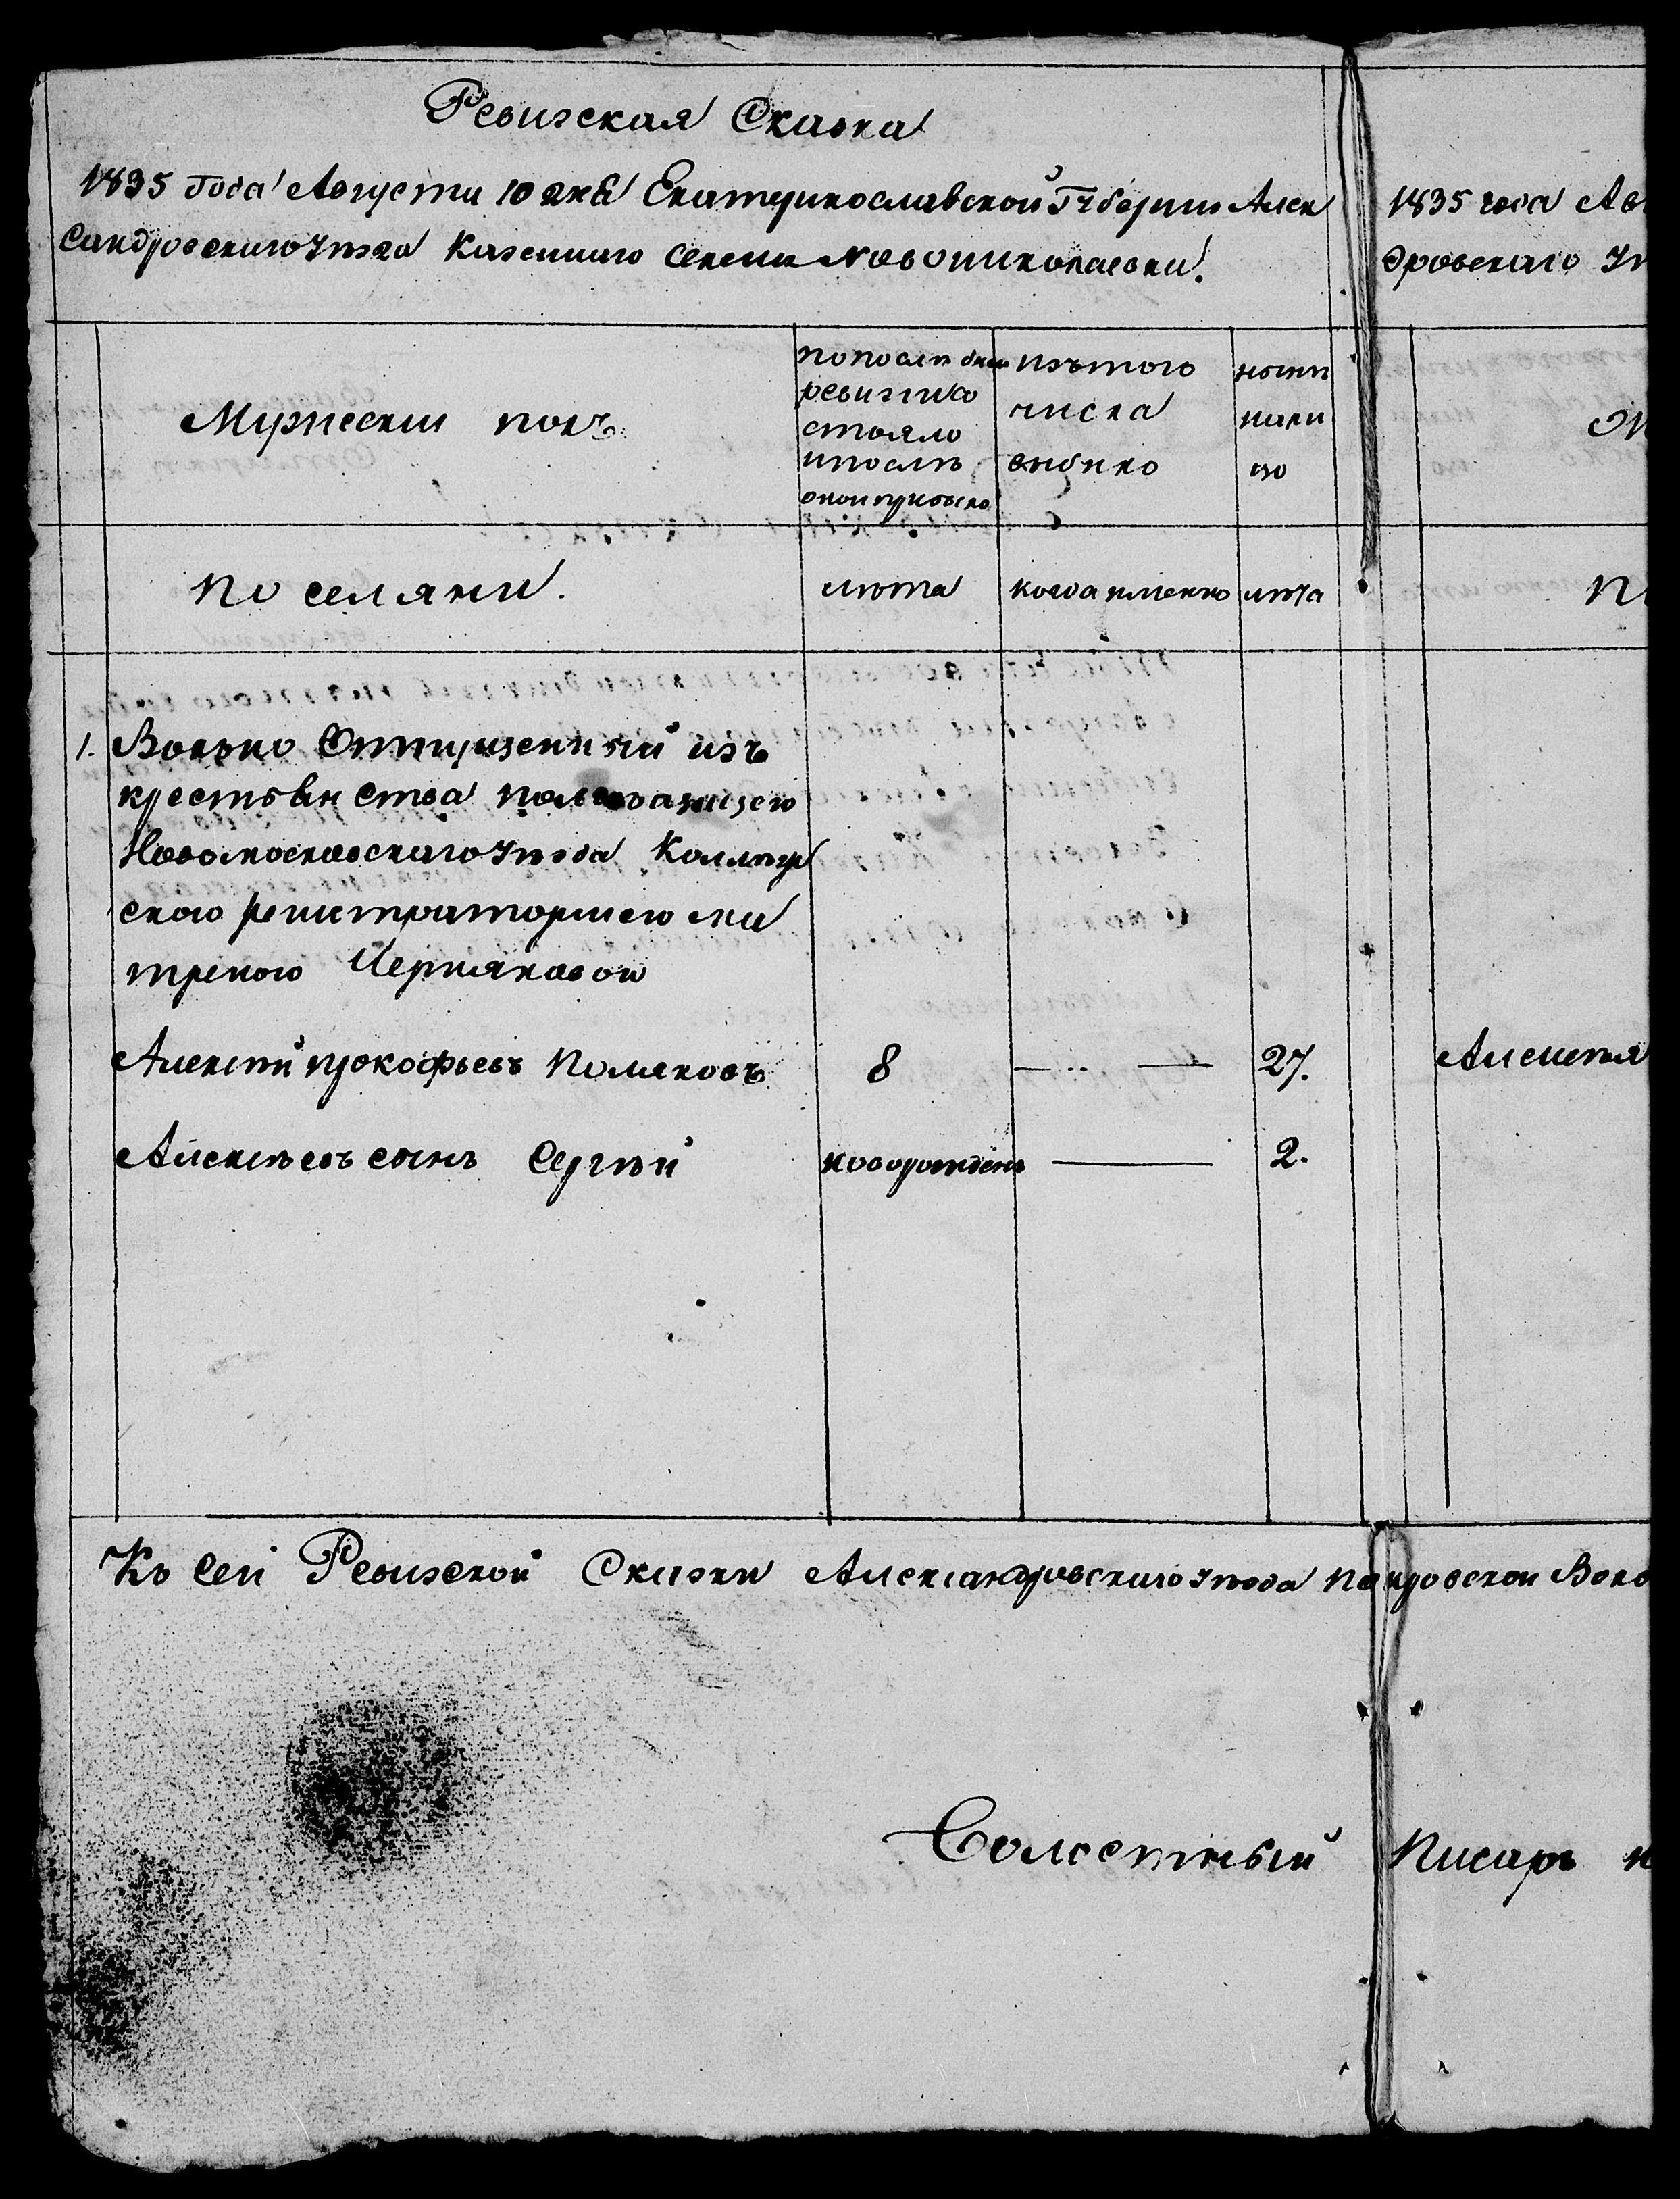 Ревизская Сказка
1835 Года Августа 10 дня Екатеринославской Губернии Алек
сандровскаго уезда Казеннаго селения Новониколаевки.
Мужеский полъ
по последней
ревизии со
стояло
и после
оной прибыло
изъ того
числа
выбыло
ныне
на ли
цо
поселяни.
лета
когда именно
лета
1. Вольно Отпущенный изъ
крестьянства помещицею
Новомосковскаго уезда Коллеж
скою регистраторшею
Черняковой
Алексей прокофьевъ Поляковъ 8 — 27.
Алексеевъ сынъ Сергей новорожденъ — 2.
Къ сей Ревизской Сказки Александровскаго уезда покровской Воло
Волостный Писарь
1835 года Ав
дровскаго уе
Алексея